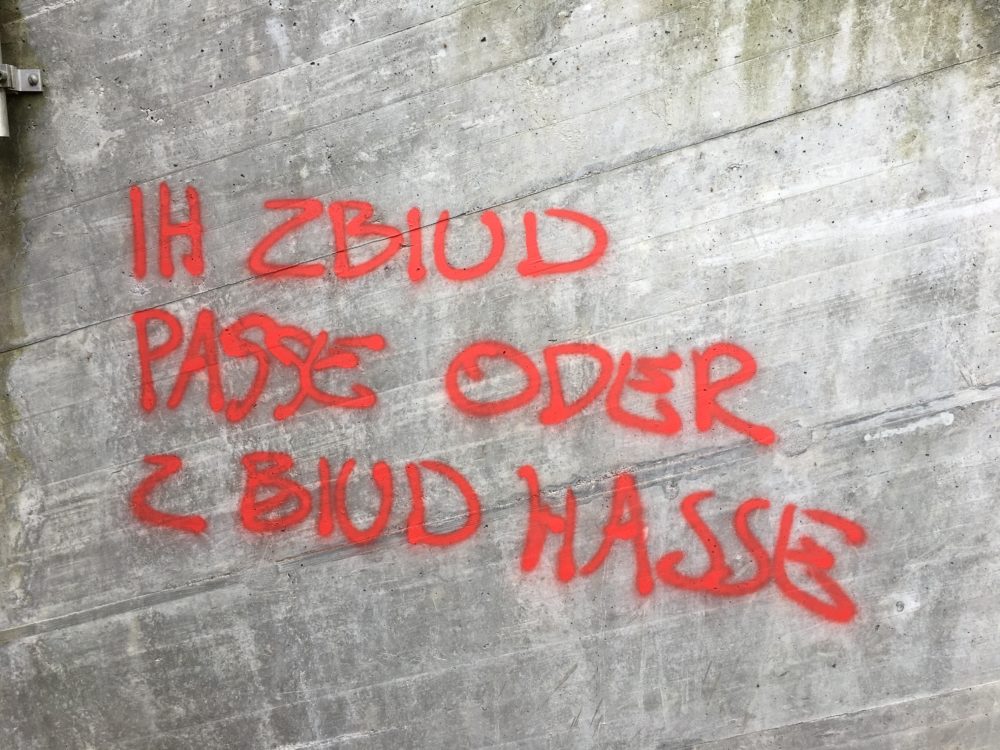 IH ZBIUD
PASSE ODER
Z BIUD HASSE